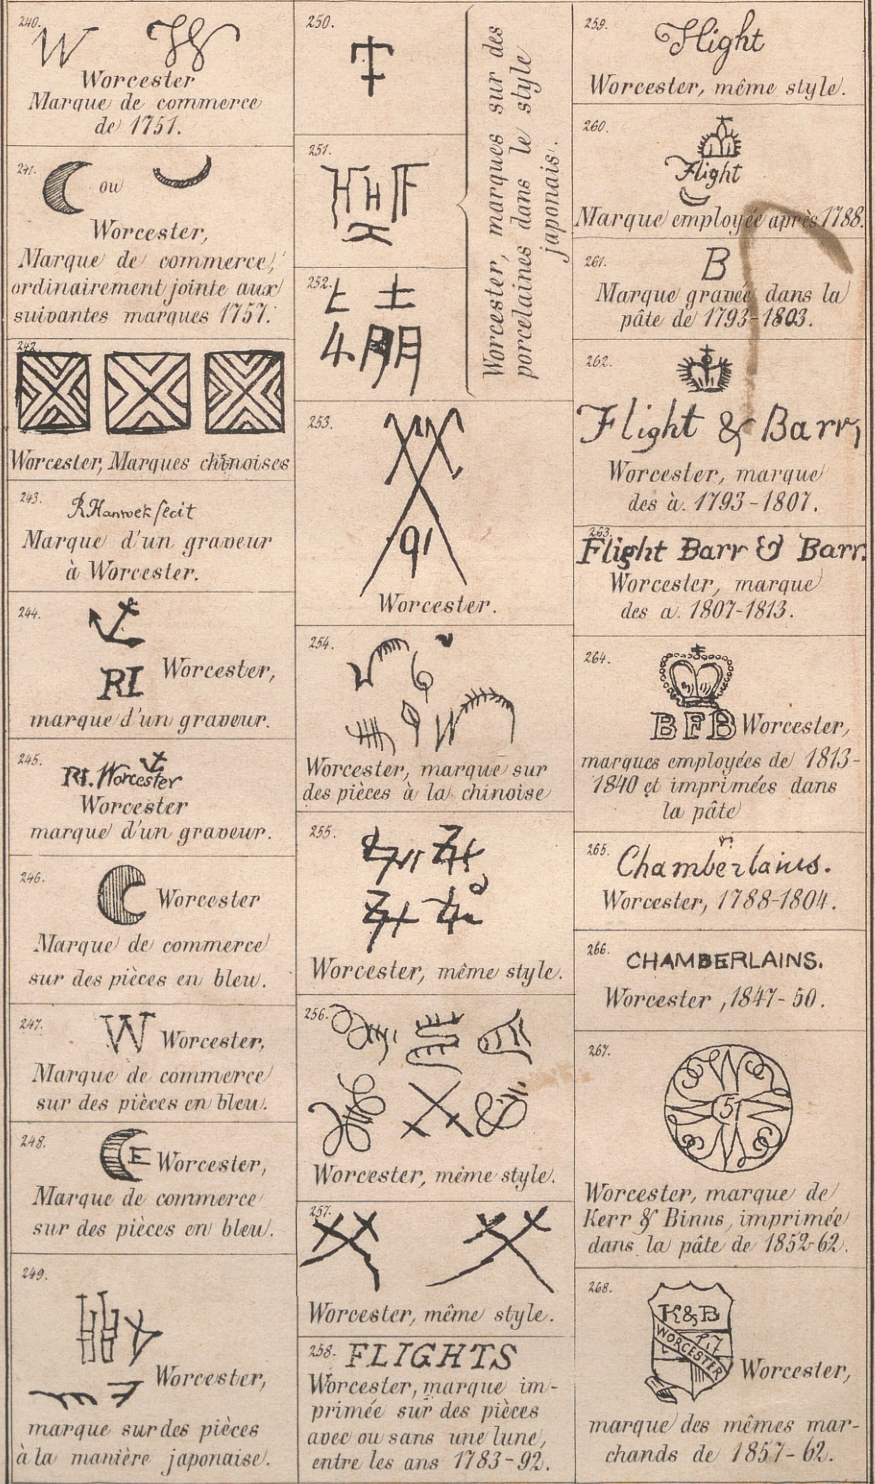 240.
W W
Worcester
Marque de commerce
de 1751.
241.
ou
Worcester,
Marque de commerce,
ordinairement jointe aux
suivantes marques 1757.
242.
Worcester, Marques chinoises
243.
R. Hancock fecit
Marque d'un graveur
à Worcester.
244.
RI Worcester,
marque d'un graveur.
245.
RI. Worcester
Worcester
marque d'un graveur.
246.
Worcester
Marque de commerce
sur des pièces en bleu.
247.
W Worcester,
Marque de commerce
sur des pièces en bleu.
248.
E Worcester,
Marque de commerce
sur des pièces en bleu.
249.
Worcester,
marque sur des pièces
à la manière japonaise.
250.
251.
252.
Worcester, marques sur des
porcelaines dans le style
japonais.
253.
91
Worcester.
254.
Worcester, marque sur
des pièces à la chinoise
255.
Worcester, même style.
256.
Worcester, même style.
257.
Worcester, même style.
258. FLIGHTS
Worcester, marque im-
primée sur des pièces
avec ou sans une lune,
entre les ans 1783-92.
259.
Flight
Worcester, même style.
260.
Flight
Marque employée après 1788.
261.
B
Marque gravée dans la
pâte de 1793-1803.
262.
Flight & Barr,
Worcester, marque
des a. 1793-1807.
263.
Flight Barr & Barr.
Worcester, marque
des a. 1807-1813.
264.
BFB Worcester,
marques employées de 1813-
1840 et imprimées dans
la pâte
265.
Chamberlains.
Worcester, 1788-1804.
266.
CHAMBERLAINS.
Worcester, 1847-50.
267.
51
Worcester, marque de
Kerr & Binns, imprimée
dans la pâte de 1852-62.
268.
K&B
WORCESTER
Worcester,
marque des mêmes mar-
chands de 1857-62.